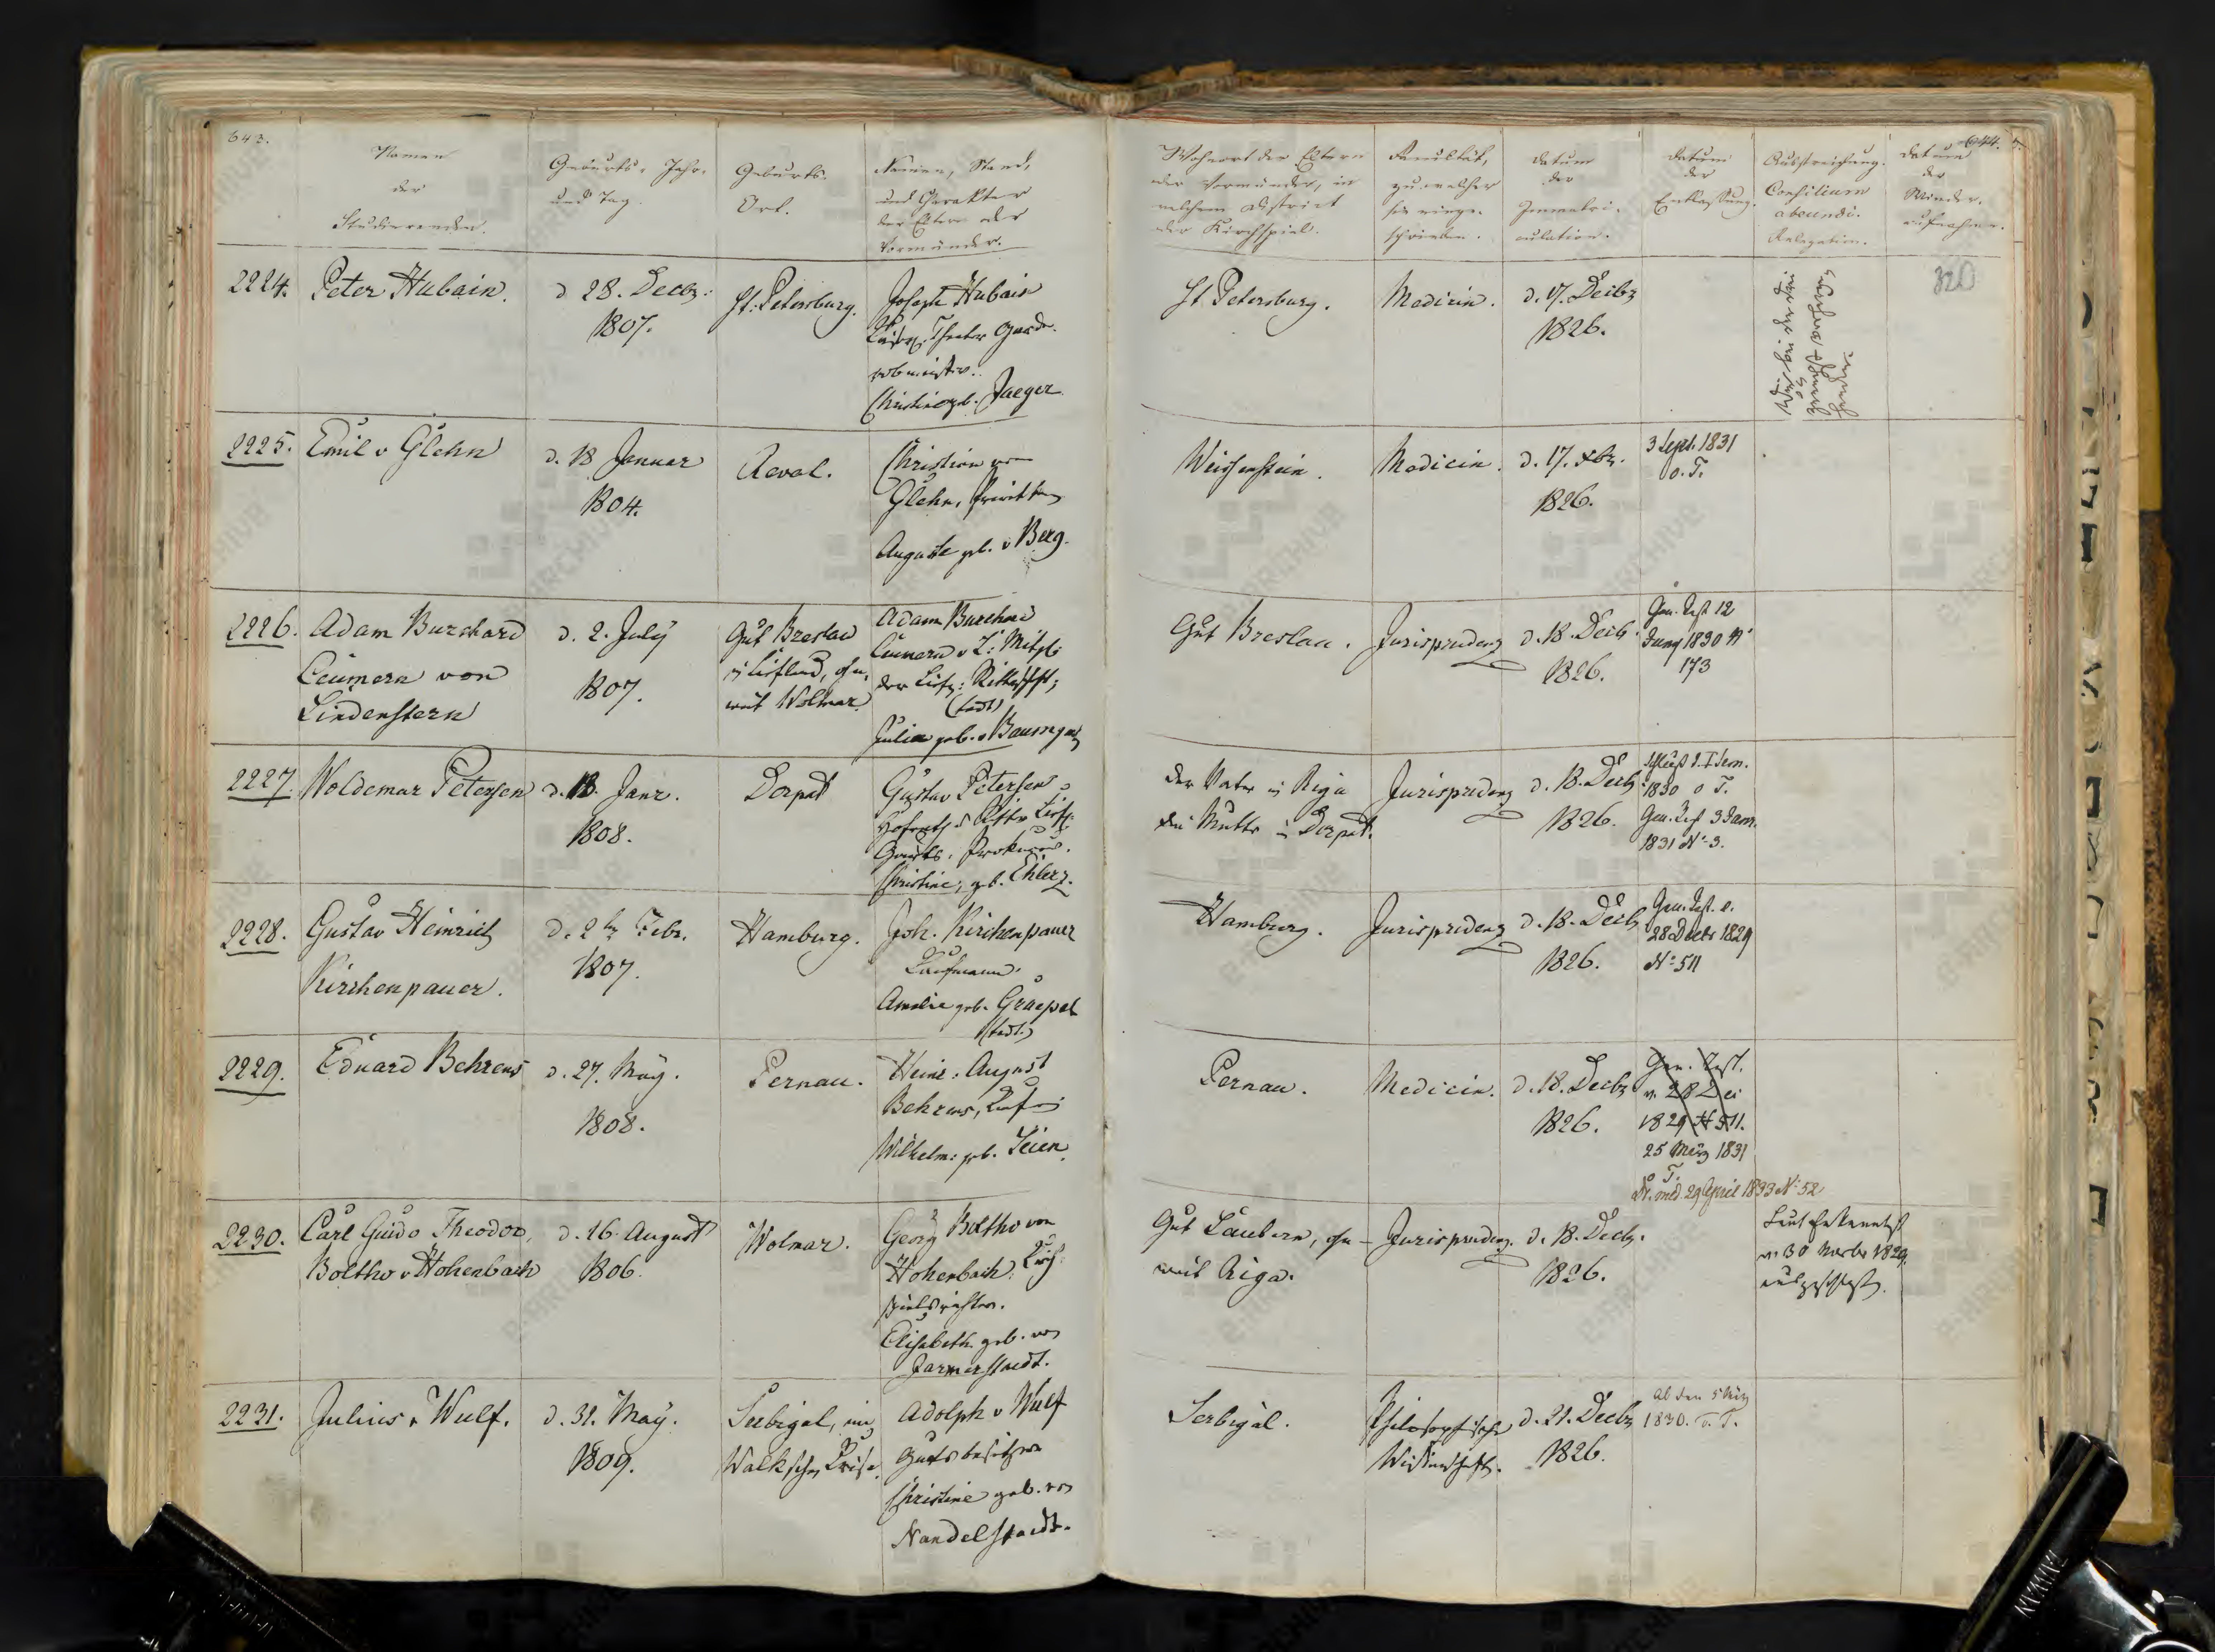 643.
Namen
der
Studierenden.
Geburts-Jahr
und Tag.
Geburts-
Ort.
Namen, Stand,
und Charakter
der Eltern oder
Vormünder.
Wohnort der Eltern
oder Vormünder, in
welchem District
oder Kirchspiel.
Facultät,
zu welcher
sie einge-
schrieben.
Datum
der
Immatri-
culation.
Datum
der
Entlassung.
Ausstreichung.
Consilium
abeundi.
Relegation.
644.
Datum
der
Wieder-
aufnahme.
2224.
Peter Hubain.
d 28. Decbr:
1807.
St: Petersburg.
Joseph Hubain
Theater Garde-
robemeister.
Christine geb. Jaeger
St Petersburg.
Medicin.
d. 17. Decbr
1826.
320
2225.
Emil v Glehn
d. 18 Januar
1804.
Reval.
Christian von
Glehn,
Auguste geb. v Berg.
Weissenstein.
Medicin.
d. 17. Xbr.
1826.
3 Sept. 1831
o. T.
2226.
Adam Burchard
Ceumern von
Lindenstern
d. 2. July
1807.
Gut Breslau
in Liefland, ohn-
weit Wolmar
Adam Burchard
Ceumern v L: Mitgl:
der Liefl: Ritterschft;
(todt)
Julia geb. v Baumgar
Gut Breslau.
Jurisprudenz
d. 18. Decb.
1826.
Gen. Test 12
Juny 1830 No
173
2227.
Woldemar Petersen
d. 18. Janr.
1808.
Dorpat
Gustav Petersen
Hofrath
Christine, geb. Ehlerz.
der Vater in Riga
die Mutter in Dorpat.
Jurisprudenz
d. 18. Decb.
1826.
Schluß d. I Sem.
1830 o T.
Gen. Test 3 Janr.
1831 No 3.
2228.
Gustav Heinrich
Kirchenpauer.
d. 2ten Febr.
1807.
Hamburg.
Joh. Kirchenpauer
Kaufmann.
Amalie geb. Graepel
(todt.)
Hamburg.
Jurisprudenz
d. 18. Decb
1826.
Gen. Test. v.
28 Decbr 1829
No 511
2229.
Eduard Behrens
d. 27. May.
1808.
Pernau.
Heinr: August
Behrens, Kaufm:
Wilhelm: geb. Leien.
Pernau.
Medicin.
d. 18. Decbr
1826.
Gen. Test.
v. 28 Dec
1829 No 511.
25 März 1831
o T.
Dr. med. 29 April 1833 No 52
2230.
Carl Guido Theodor,
Boltho v Hohenbach
d. 16. August
1806.
Wolmar.
Georg Boltho von
Hohenbach, Kirch-
spielsrichter.
Elisabeth geb. von
Jarmerstaedt.
Gut Laubern, ohn-
weit Riga.
Jurisprudenz
d. 18. Decbr.
1826.
Laut Erkenntniß
v. 30 Novbr 1829,
ausgeschloß.
2231.
Julius v Wulf.
d. 31. May.
1809.
Serbigal, im
Walkschen Kreise.
Adolph v Wulf
Gutsbesitzer
Christine geb. von
Nandelstaedt.
Serbigal.
Philosophische
Wissenschaft.
d. 21. Decbr
1826.
Ab den 5 März
1830. o. T.